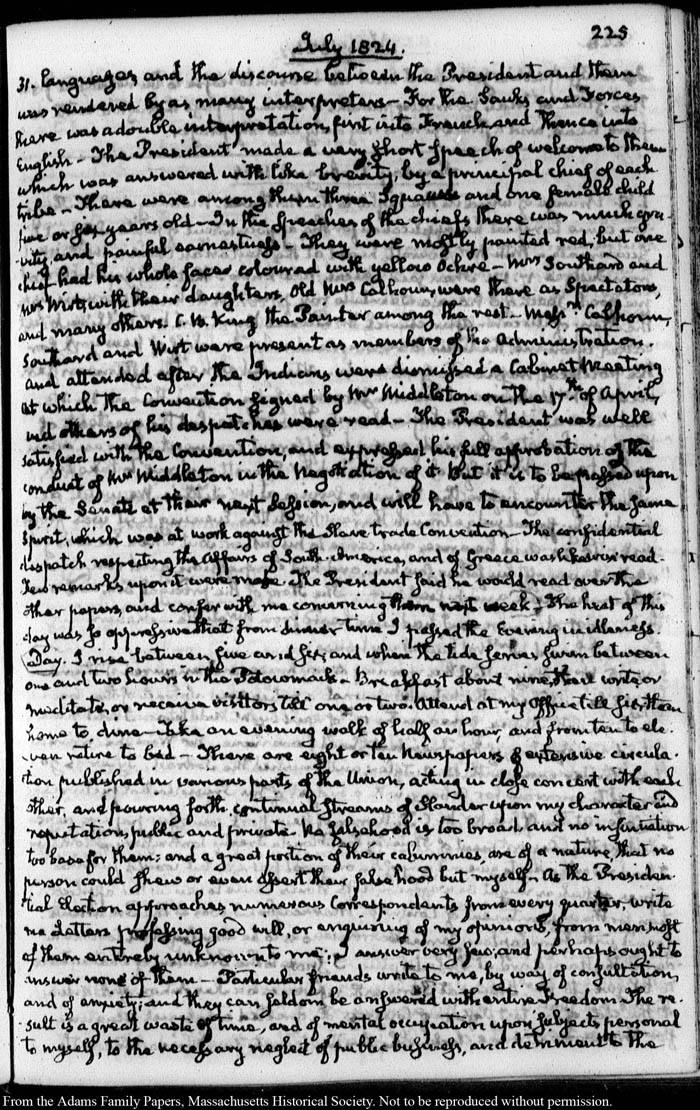 225
July 1824.
31. languages and the discourse between the President and them
was rendered by as many interpreters — For the Sawks and Foxes
there was a double interpretation, first into French and thence into
English — The President made a very short speech of welcome to them
which was answered with like brevity, by a principal chief of each
tribe — There were among them three Squaws and one female child
five or six years old — In the speeches of the chiefs there was much gra-
vity, and painful earnestness — They were mostly painted red, but one
chief had his whole face coloured with yellow Ochre — Mrs Southard and
Mrs Wirt, with their daughters, Old Mrs Calhoun, were there as Spectators,
and many others. C. B. King the Painter among the rest — Messrs Calhoun,
Southard and Wirt were present as members of the Administration.
and attended after the Indians were dismissed a Cabinet Meeting
at which the Convention signed by Mr Middleton on the 17th of April,
and others of his despatches were read — The President was well
satisfied with the Convention, and expressed his full approbation of the
conduct of Mr Middleton in the Negotiation of it. But it is to be passed upon
by the Senate at their next Session, and will have to encounter the same
Spirit, which was at work against the Slave trade Convention — The confidential
despatch respecting the Affairs of South-America, and of Greece was likewise read —
Few remarks upon it were made. The President said he would read over the
other papers, and confer with me concerning them next week — The heat of this
day was so oppressive that from dinner time I passed the Evening in idleness.
Day. I rise between five and six, and when the tide serves swim between
one and two hours in the Potowmack — Breakfast about nine, then write, or
meditate, or receive visitors till one or two. Attend at my Office till six, then
home to dine — Take an evening walk of half an hour, and from ten to ele-
ven retire to bed — There are eight or ten Newspapers of extensive circula-
tion published in various parts of the Union, acting in close concert with each
other, and pouring forth continual streams of Slander upon my character and
reputation, public and private. No falsehood is too broad, and no insinuation
too base for them: and a great portion of their calumnies, are of a nature, that no
person could shew or even assert their falsehood but myself — As the Presiden-
tial Election approaches numerous Correspondents from every quarter, write
me Letters professing good will, or enquiring of my opinions, from men, most
of them entirely unknown to me; I answer very few; and perhaps ought to
answer none of them — Particular friends write to me, by way of consultation,
and of anxiety; and they can seldom be answered with entire Freedom. The re-
sult is a great waste of time, and of mental occupation upon subjects personal
to myself, to the necessary neglect of public business, and detriment to the
From the Adams Family Papers, Massachusetts Historical Society. Not to be reproduced without permission.